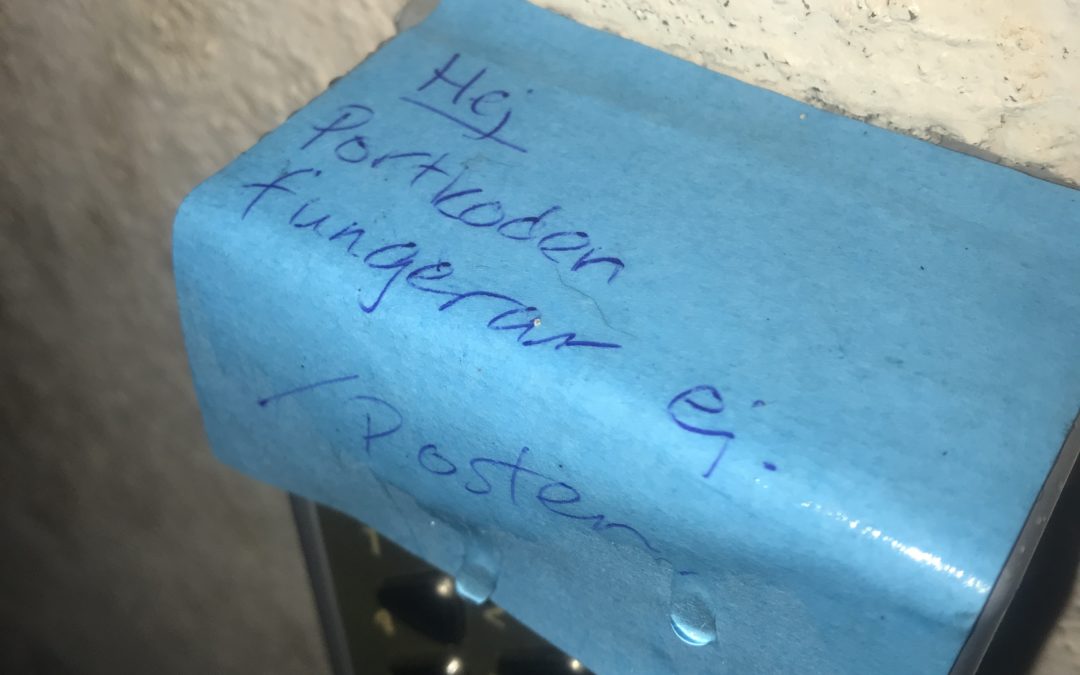 Hej
Portkoden
fungerar ej.
/Posten